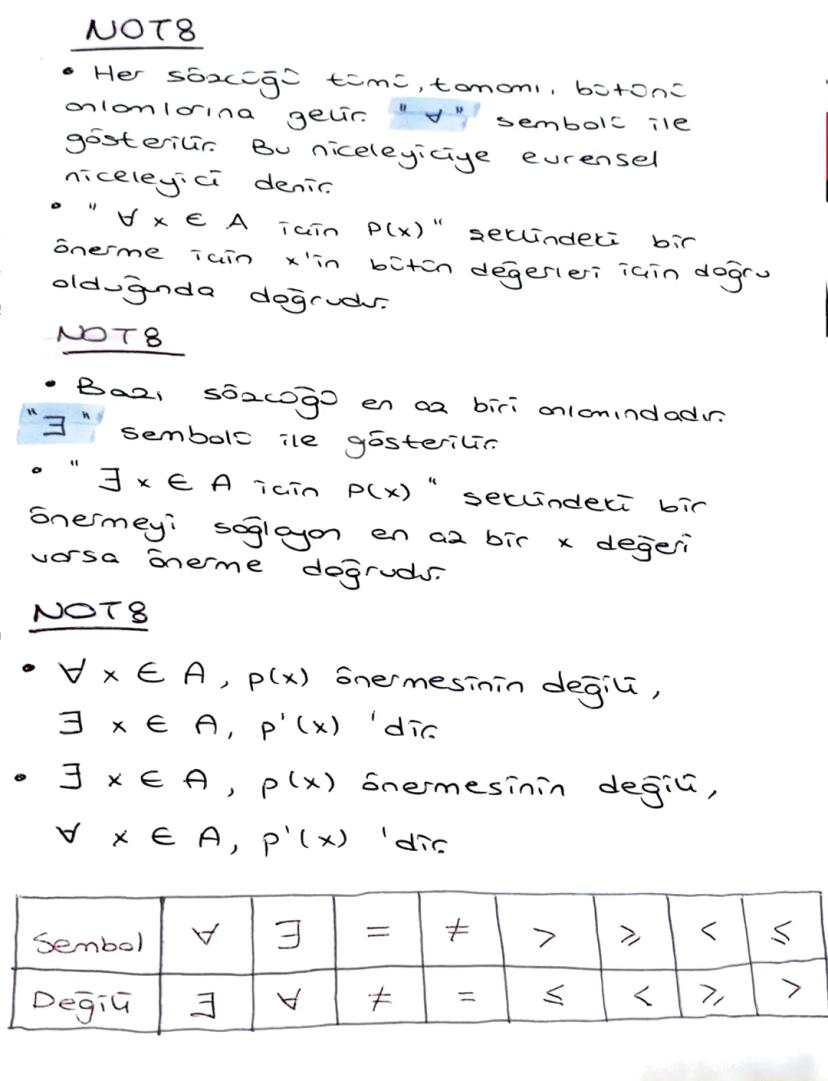 NOT8
• Her sözcüğü tümü, tamamı, bütünü
anlamlarına gelir. "∀" sembolü ile
gösterilir. Bu niceleyiciye evrensel
niceleyici denir.
• "∀ x ∈ A için P(x)" şeklindeki bir
önerme için x'in bütün değerleri için doğru
olduğunda doğrudur.
NOT8
• Bazı sözcüğü en az biri anlamındadır.
"∃" sembolü ile gösterilir.
• "∃ x ∈ A için P(x)" şeklindeki bir
önermeyi sağlayan en az bir x değeri
varsa önerme doğrudur.
NOT8
• ∀ x ∈ A, p(x) önermesinin değili,
∃ x ∈ A, p'(x) 'dir.
• ∃ x ∈ A, p(x) önermesinin değili,
∀ x ∈ A, p'(x) 'dir.
Sembol ∀ ∃ = ≠ > ≥ < ≤
Değili ∃ ∀ ≠ = ≤ < ≥ >